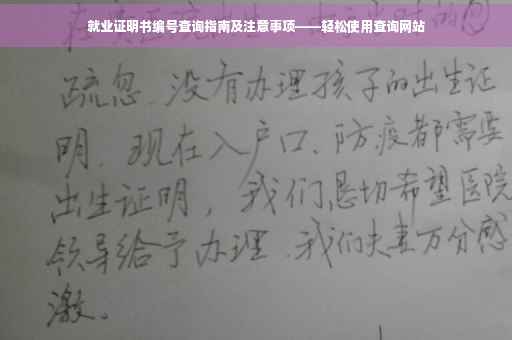 就业证明书编号查询指南及注意事项——轻松使用查询网站
疏忽、没有办理孩子的出生证
明、现在入户口、防疫都需要
出生证明，我们恳切希望医院
领导给予办理、我们夫妻万分感
激。